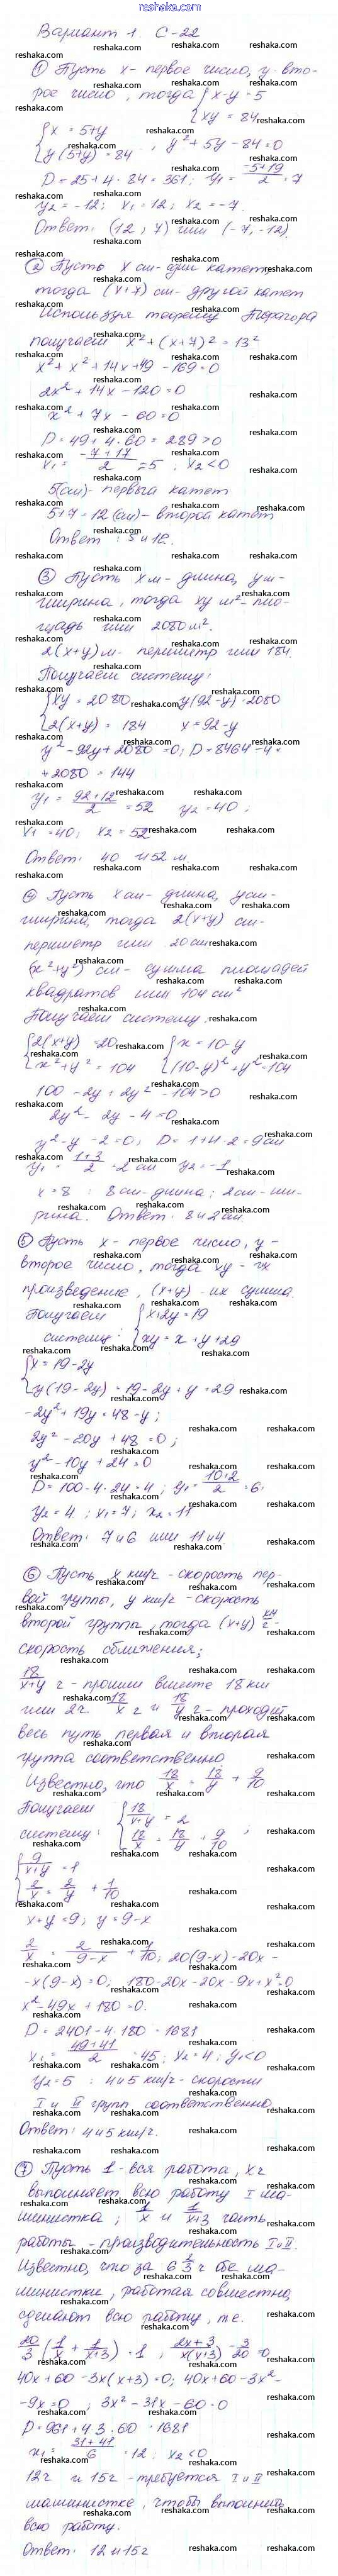 reshaka.com
Вариант 1 С-22
① Пусть x - первое число, y - вто-
рое число, тогда { x - y = 5
{ xy = 84
{ x = 5+y
{ y(5+y) = 84 , y² + 5y - 84 = 0
D = 25 + 4 · 84 = 361; y₁ = (-5+19)/2 = 7
y₂ = -12; x₁ = 12; x₂ = -7.
Ответ: (12, 7) или (-7, -12).
② Пусть x см - один катет
тогда (x+7) см - другой катет
Используя теорему Пифагора
получаем x² + (x+7)² = 13²
x² + x² + 14x + 49 - 169 = 0
2x² + 14x - 120 = 0
x² + 7x - 60 = 0
D = 49 + 4 · 60 = 289 > 0
x₁ = (-7+17)/2 = 5 ; x₂ < 0
5(см) - первый катет
5+7 = 12 (см) - второй катет
Ответ: 5 и 12.
③ Пусть x м - длина, y м -
ширина, тогда xy м² - пло-
щадь или 2080 м².
2(x+y) м - периметр или 184.
Получаем систему:
{ xy = 2080 y(92-y) = 2080
{ 2(x+y) = 184 x = 92-y
y² - 92y + 2080 = 0; D = 8464 - 4 ·
· 2080 = 144
y₁ = (92+12)/2 = 52 y₂ = 40;
x₁ = 40; x₂ = 52
Ответ: 40 и 52 м.
④ Пусть x см - длина, y см -
ширина, тогда 2(x+y) см -
периметр или 20 см
(x²+y²) см - сумма площадей
квадратов или 104 см²
Получаем систему.
{ 2(x+y) = 20 { x = 10-y
{ x² + y² = 104 { (10-y)² + y² = 104
100 - 2y + 2y² - 104 > 0
2y² - 2y - 4 = 0
y² - y - 2 = 0; D = 1+4·2 = 9 см
y₁ = (1+3)/2 = 2 см y₂ = -1
x = 8 : 8 см - длина; 2 см - ши-
рина. Ответ: 8 и 2 см
⑤ Пусть x - первое число, y -
второе число, тогда xy - их
произведение, (x+y) - их сумма.
Получаем
систему: { x+2y = 19
{ xy = x + y + 29
{ x = 19-2y
{ y(19-2y) = 19-2y+y+29
-2y² + 19y = 48 - y;
2y² - 20y + 48 = 0;
y² - 10y + 24 = 0
D = 100 - 4 · 24 = 4; y₁ = (10+2)/2 = 6;
y₂ = 4; x₁ = 7; x₂ = 11
Ответ: 7 и 6 или 11 и 4.
⑥ Пусть x км/ч - скорость пер-
вой группы, y км/ч - скорость
второй группы, тогда (x+y) км/ч -
скорость сближения;
18/(x+y) ч - прошли вместе 18 км
или 2ч. 18/x ч и 18/y ч - проходит
весь путь первая и вторая
группа соответственно
Известно, что 18/x = 18/y + 9/10
Получаем
систему: { 18/(x+y) = 2
{ 18/x = 18/y + 9/10 ,
{ 9/(x+y) = 1
{ 2/x = 2/y + 1/10
x+y = 9; y = 9-x
2/x = 2/(9-x) + 1/10; 20(9-x) - 20x -
-x(9-x) = 0. 180-20x-20x-9x+x²=0
x² - 49x + 180 = 0.
D = 2401 - 4 · 180 = 1681
x₁ = (49+41)/2 = 45; x₂ = 4; y₁ < 0
y₂ = 5 : 4 и 5 км/ч - скорости
I и II групп соответственно
Ответ: 4 и 5 км/ч.
⑦ Пусть 1 - вся работа, x ч
выполняет всю работу I ма-
шинистка; 1/x и 1/(x+3) часть
работы - производительность I и II.
Известно, что за 6 2/3 ч обе ма-
шинистки, работая совместно,
сделают всю работу, т.е.
20/3 (1/x + 1/(x+3)) = 1 ; (2x+3)/(x(x+3)) - 3/20 = 0
40x + 60 - 3x(x+3) = 0; 40x + 60 - 3x² -
-9x = 0 ; 3x² - 31x - 60 = 0
D = 961 + 4·3·60 = 1681
x₁ = (31+41)/6 = 12; x₂ < 0
12ч и 15ч - требуется I и II
машинистке, чтобы выполнить
всю работу.
Ответ: 12 и 15ч